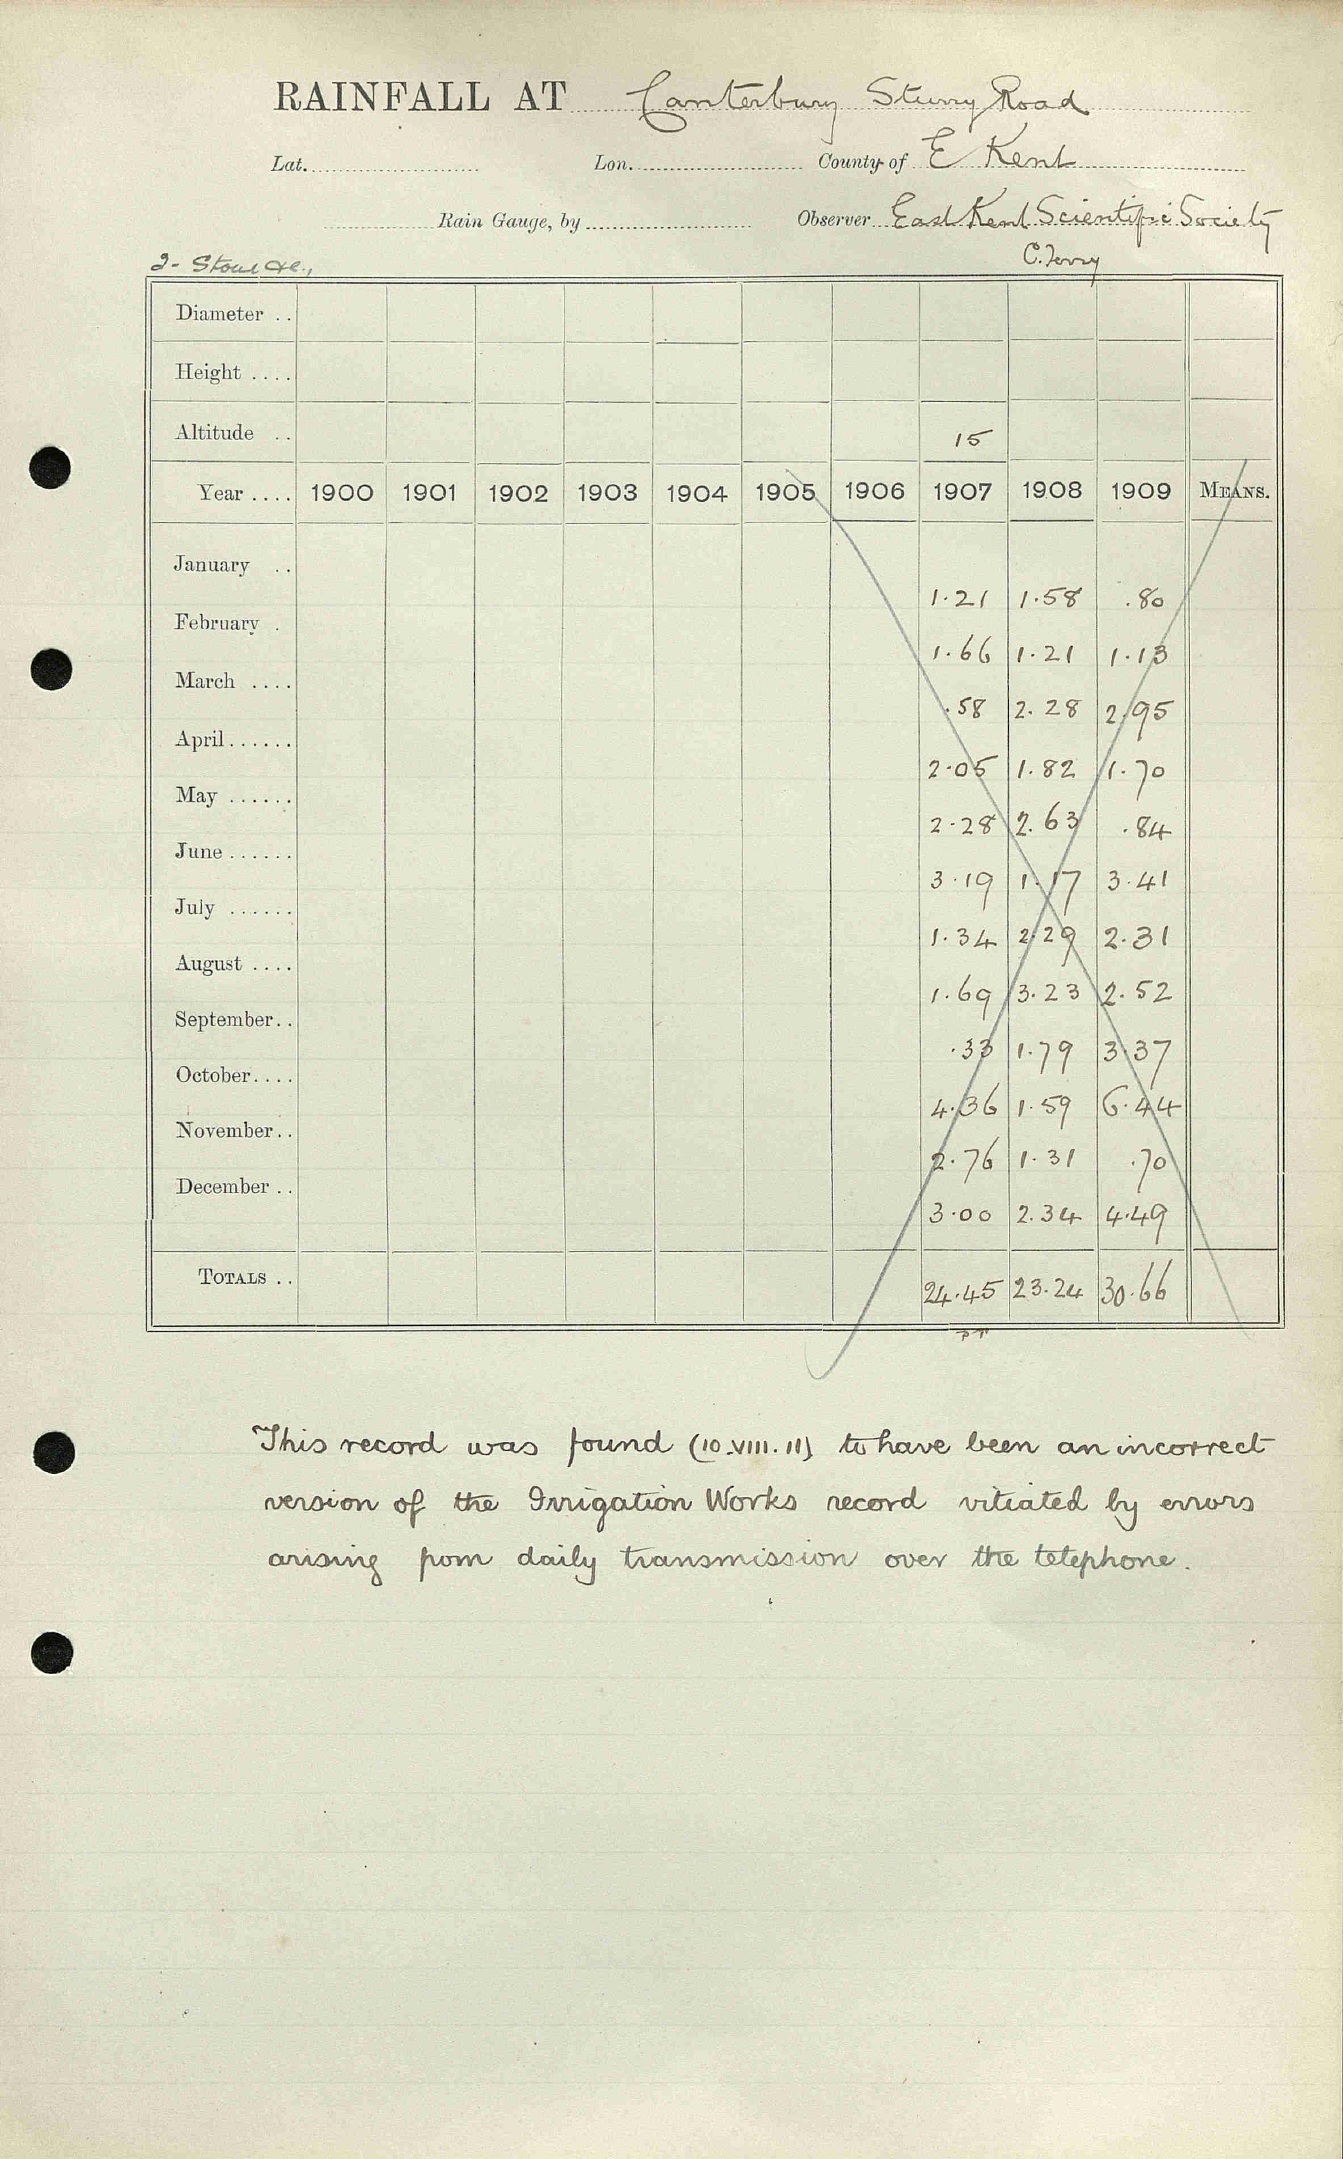 RAINFALL AT Canterbury Sturry Road
Lat. Lon. County of E Kent
Rain Gauge, by Observer East Kent Scientific Society
2 - Stour &c., C. Terry
Diameter ..
Height ....
Altitude .. 15
Year .... 1900 1901 1902 1903 1904 1905 1906 1907 1908 1909 MEANS.
January .. 1.21 1.58 .80
February . 1.66 1.21 1.13
March .... .58 2.28 2.95
April ...... 2.05 1.82 1.70
May ...... 2.28 2.63 .84
June ...... 3.19 1.17 3.41
July ...... 1.34 2.29 2.31
August .... 1.69 3.23 2.52
September.. .33 1.79 3.37
October.... 4.36 1.59 6.44
November.. 2.76 1.31 .70
December .. 3.00 2.34 4.49
TOTALS .. 24.45 23.24 30.66
This record was found (10.VIII.11) to have been an incorrect
version of the Irrigation Works record vitiated by errors
arising from daily transmission over the telephone.